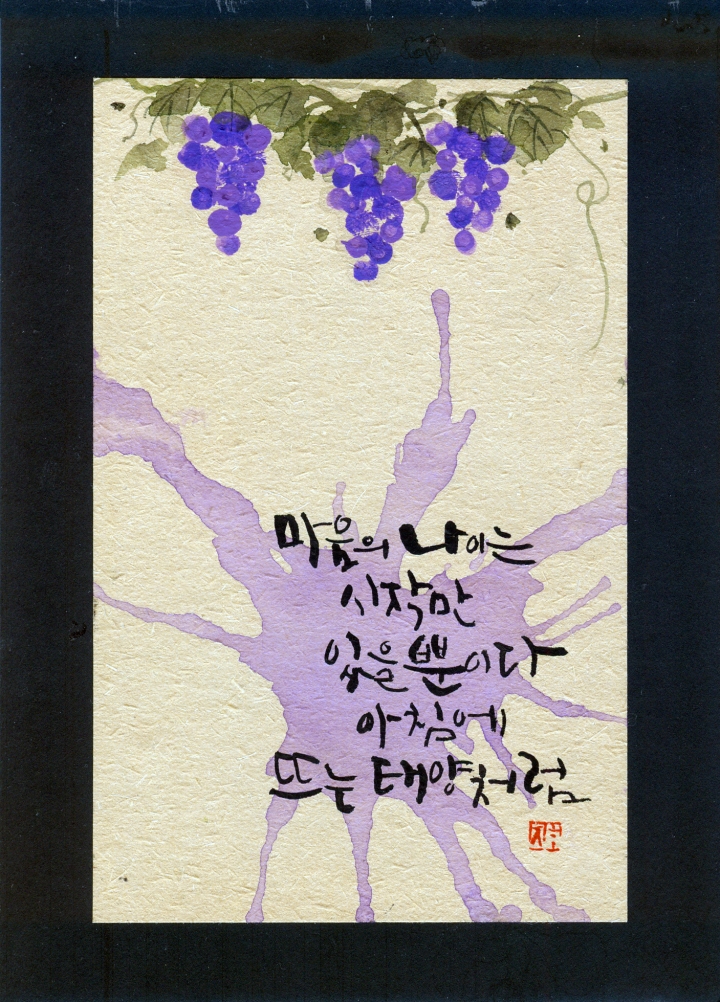 마음의 나이는
시작만
있을 뿐이다
아침에
뜨는 태양처럼